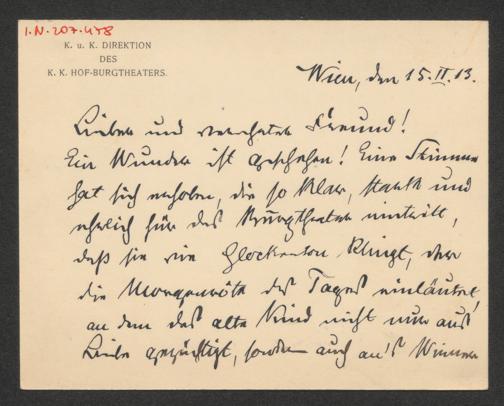 I.N. 207.478
K. u. K. DIREKTION
DES
K. K. HOF-BURGTHEATERS.
Wien, den 15. II. 13.
Lieber und verehrter Freund!
Ein Wunder ist geschehen! Eine Stimme
hat sich erhoben, die so klar, stark und
ehrlich für das Burgtheater eintritt,
daß sie wie Glockenton klingt, der
die Morgenröte des Tages einläutet,
an dem das alte Kind nicht nur aus
Liebe gezüchtigt, sondern auch an's